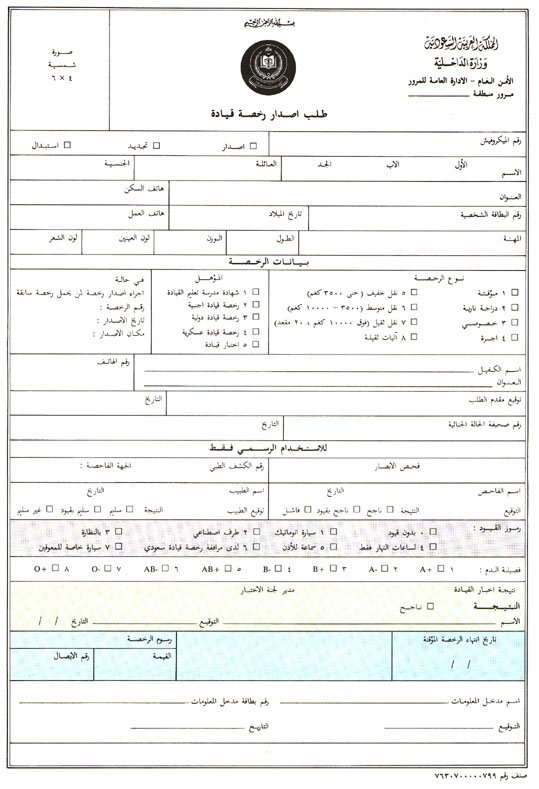 بسم الله الرحمن الرحيم
المملكة العربية السعودية
وزارة الداخلية
الأمن العام - الادارة العامة للمرور
مرور منطقة
صورة
شمسية
٤ × ٦
طلب اصدار رخصة قيادة
رقم الميكروفيش
□ اصدار □ تجديد □ استبدال
الاسم الأول الاب الجد العائلة الجنسية
العنوان هاتف السكن
رقم البطاقة الشخصية تاريخ الميلاد هاتف العمل
المهنة الطول الوزن لون العينين لون الشعر
بيانات الرخصة
نوع الرخصة
□ ١ مؤقتة □ ٥ نقل خفيف (حتى ٣٥٠٠ كغم)
□ ٢ دراجة نارية □ ٦ نقل متوسط (٣٥٠٠ - ١٠٠٠٠ كغم)
□ ٣ خصوصي □ ٧ نقل ثقيل (فوق ١٠٠٠٠ كغم، ٢٠ مقعد)
□ ٤ اجرة □ ٨ آليات ثقيلة
المؤهل
□ ١ شهادة مدرسة تعليم القيادة
□ ٢ رخصة قيادة اجنبية
□ ٣ رخصة قيادة دولية
□ ٤ رخصة قيادة عسكرية
□ ٥ اختبار قيادة
في حالة
اجراء اصدار رخصة لمن يحمل رخصة سابقة
رقم الرخصة :
تاريخ الاصدار :
مكان الاصدار :
اسم الكفيل رقم الهاتف
العنوان
توقيع مقدم الطلب التاريخ
رقم صحيفة الحالة الجنائية التاريخ
للاستخدام الرسمي فقط
فحص الابصار رقم الكشف الطبي الجهة الفاحصة :
اسم الفاحص التاريخ اسم الطبيب التاريخ
التوقيع النتيجة □ ناجح □ ناجح بقيود □ فاشل توقيع الطبيب النتيجة □ سليم □ سليم بقيود □ غير سليم
رموز القيود : □ ٠ بدون قيود □ ١ سيارة اتوماتيك □ ٢ طرف اصطناعي □ ٣ بالنظارة
□ ٤ لساعات النهار فقط □ ٥ سماعة للأذن □ ٦ لدى مرافقة رخصة قيادة سعودي □ ٧ سيارة خاصة للمعوقين
فصيلة الدم : ١ □ A+ ٢ □ A- ٣ □ B+ ٤ □ B- ٥ □ AB+ ٦ □ AB- ٧ □ O- ٨ □ O+
نتيجة اخبار القيادة مدير لجنة الاختبار
النتيجة □ ناجح
الاسم التوقيع التاريخ / /
تاريخ انتهاء الرخصة المؤقتة رسوم الرخصة
/ / القيمة رقم الايصال
اسم مدخل المعلومات رقم بطاقة مدخل المعلومات
التوقيع التاريخ
صنف رقم ٧٦٣٠٧٠٠٠٠٠٧٩٩